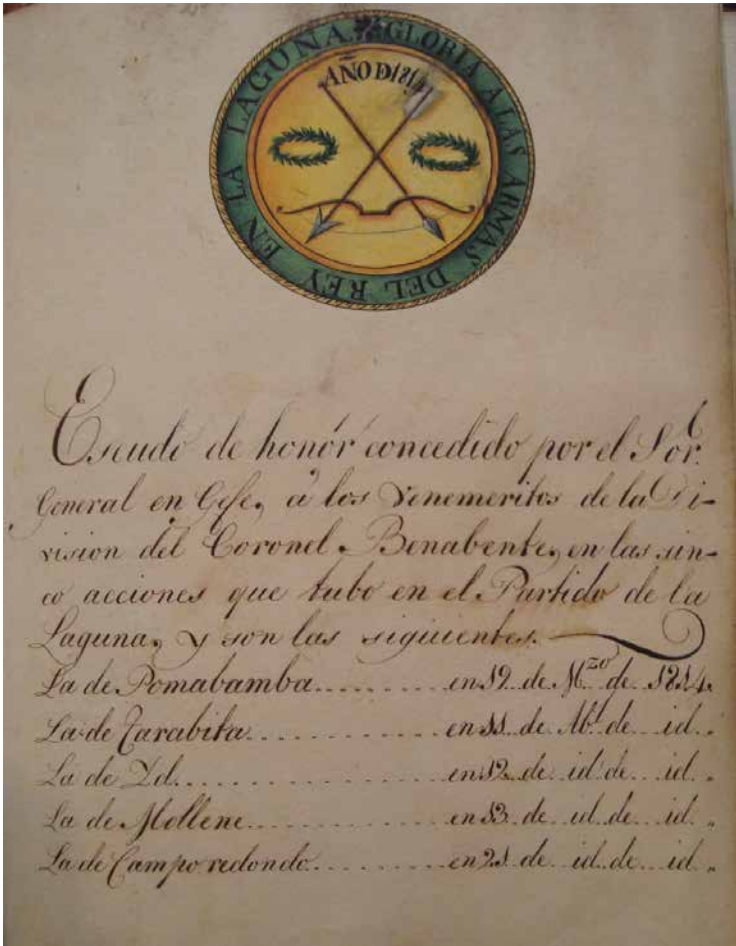 GLORIA A LAS ARMAS DEL REY EN LA LAGUNA
AÑO D 1814
Escudo de honór concedido por el Sor.
General en Gefe, á los Venemeritos de la Di-
vision del Coronel Benabente, en las sin-
co acciones que tubo en el Partido de la
Laguna, y son las siguientes.
La de Pomabamba......... en 19 de Mzo de 1814.
La de Tarabita................ en 11 de Abl de id.
La de Yd........................ en 12 de id de id.
La de Mollene................ en 13 de id de id.
La de Campo redondo......... en 21 de id de id.